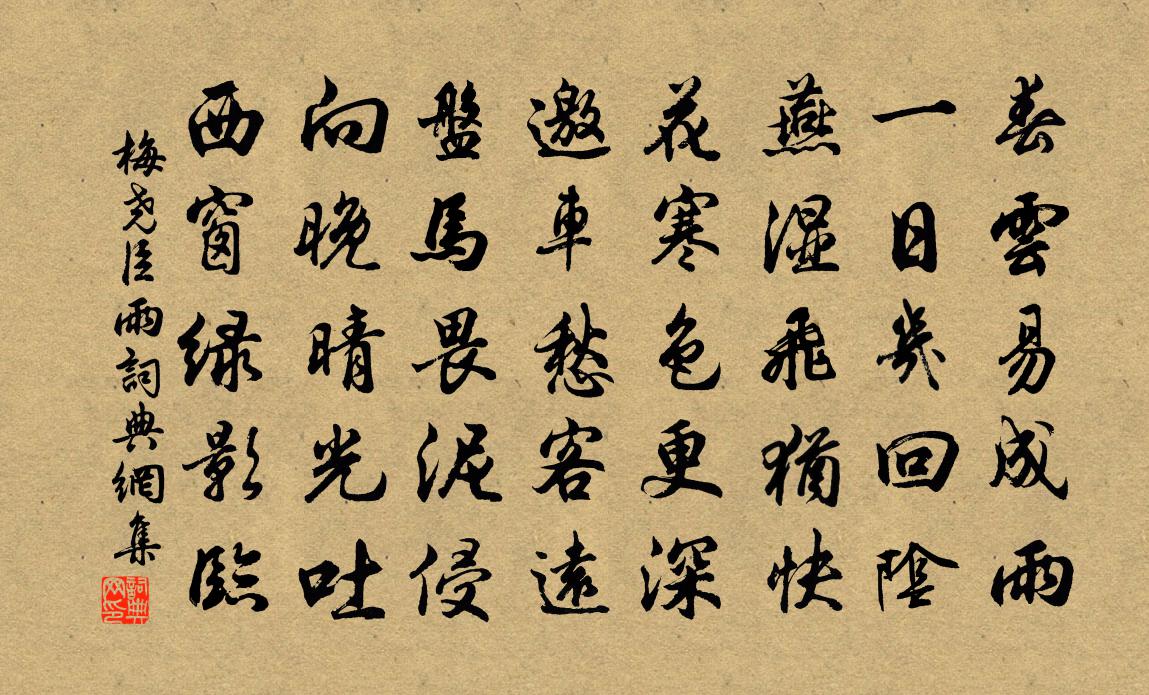 春雲易成雨
一日幾回陰
燕濕飛猶快
花寒色更深
邀車愁客遠
盤馬畏泥侵
向晚晴光吐
西窗綠影臨
梅堯臣雨詞典網集
詞典網印